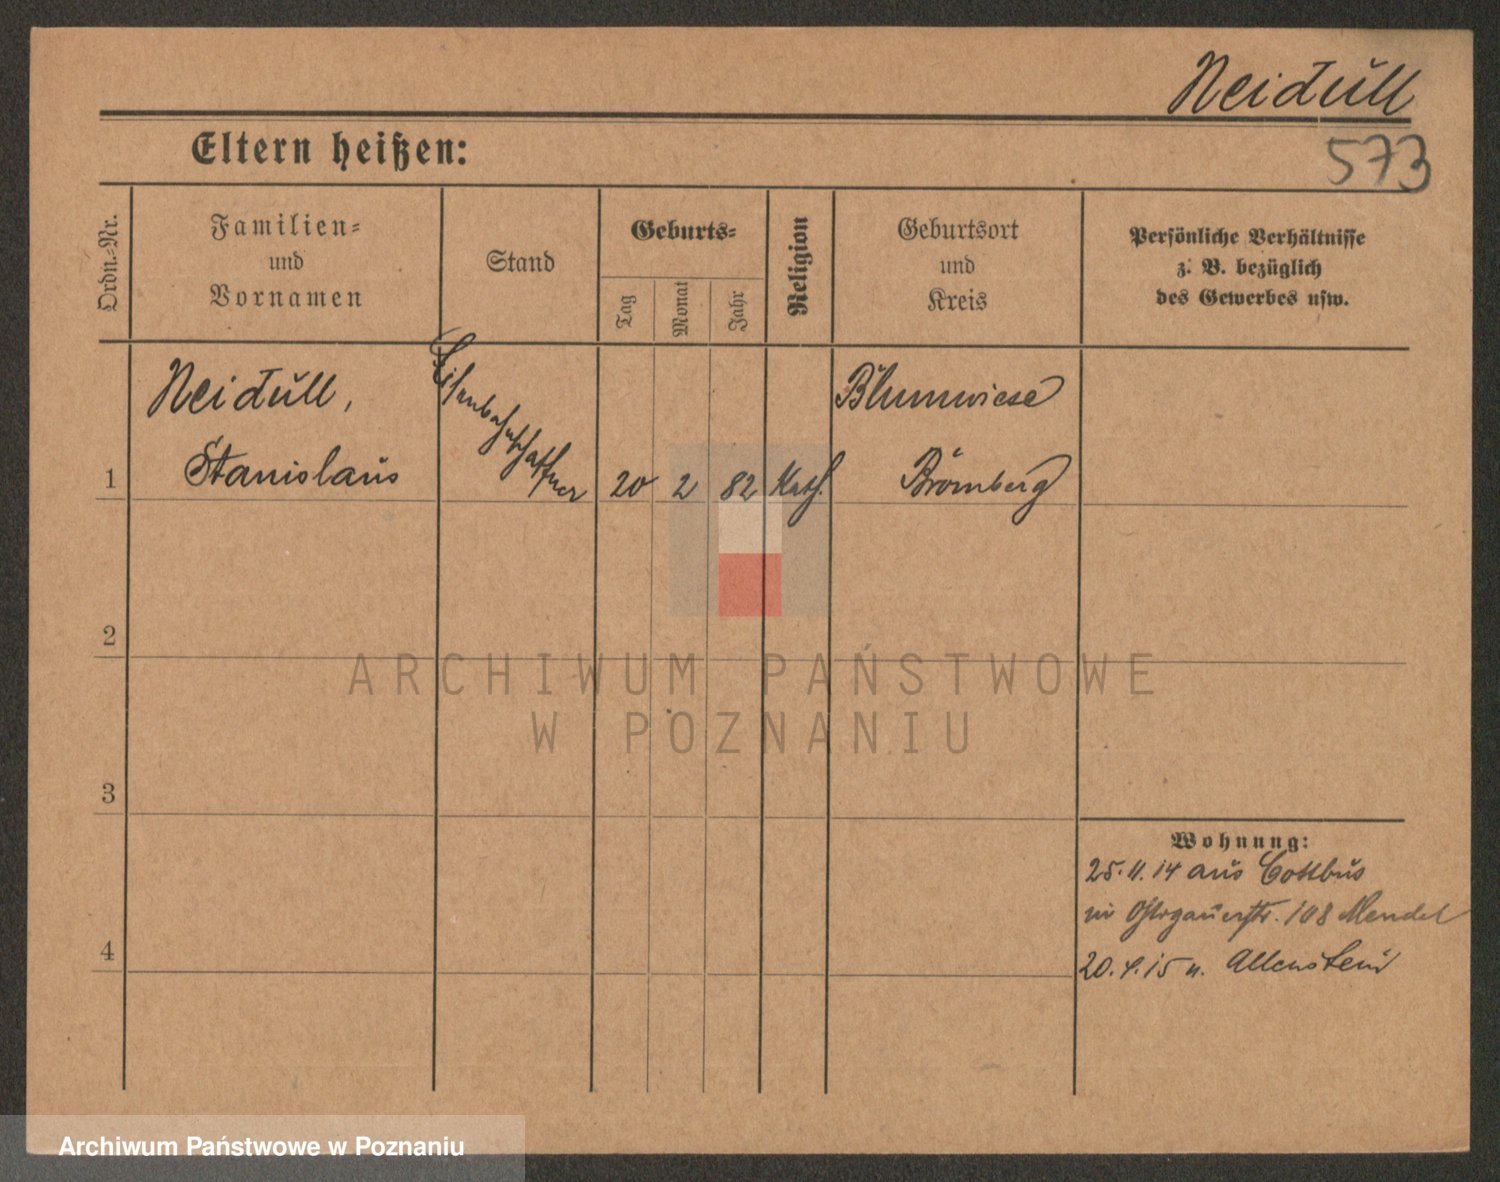 Neidull
573
Eltern heißen:
Ordn.=Nr.
Familien=
und
Vornamen
Stand
Geburts=
Tag
Monat
Jahr
Religion
Geburtsort
und
Kreis
Persönliche Verhältnisse
z. B. bezüglich
des Gewerbes usw.
1
Neidull,
Stanislaus
Eisenbahnschaffner
20
2
82
Kath.
Blumwiese
Bromberg
2
3
4
Wohnung:
25.11.14 aus Cottbus
108 Mendel
20.4.15 n. Allenstein
ARCHIWUM PAŃSTWOWE
W POZNANIU
Archiwum Państwowe w Poznaniu